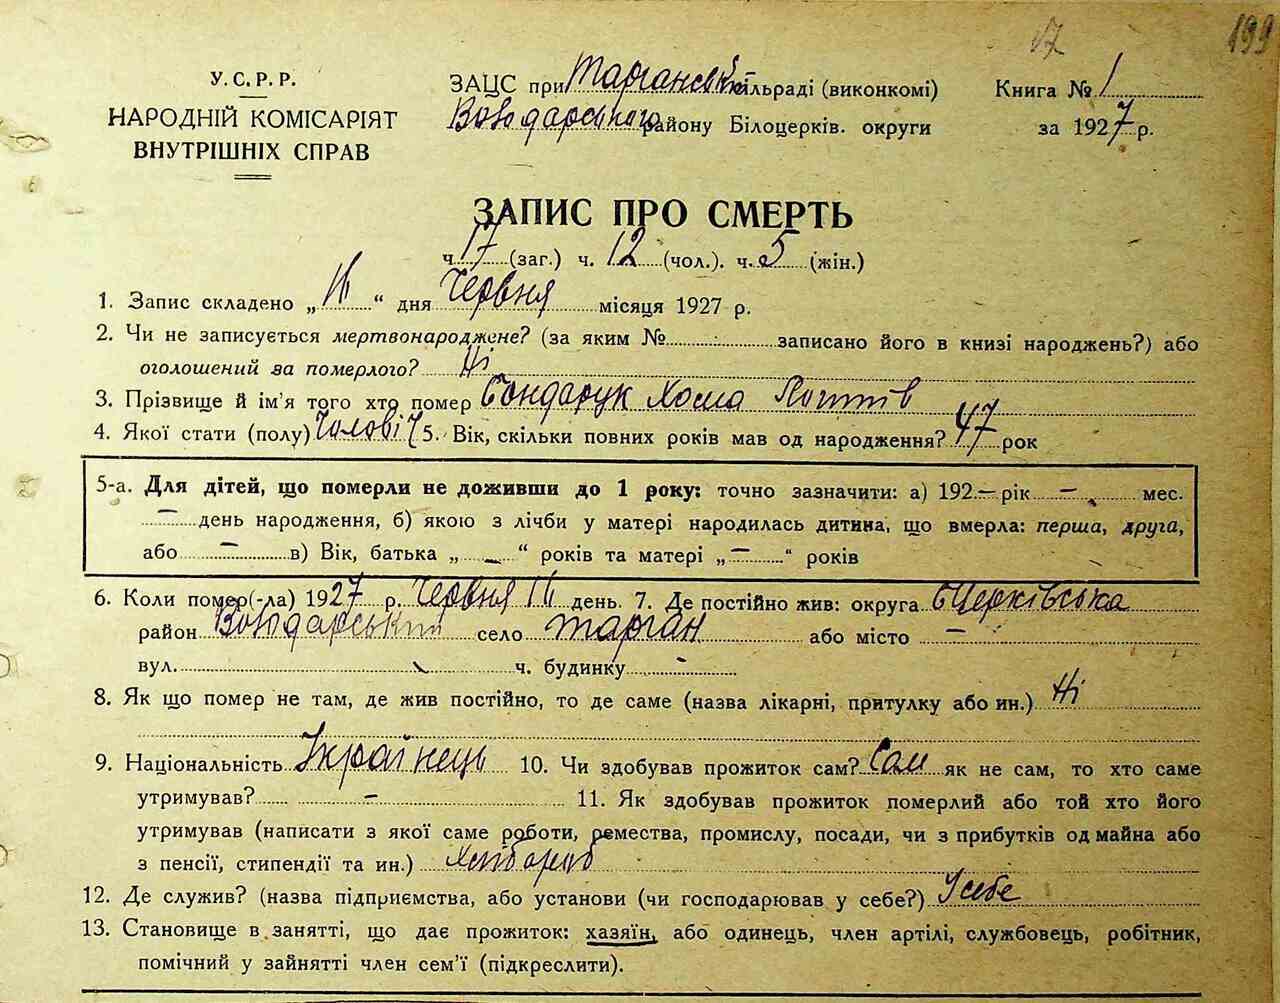 17 199
У.С.Р.Р.
НАРОДНІЙ КОМІСАРІЯТ
ВНУТРІШНІХ СПРАВ
ЗАЦС при Тарганській сільраді (виконкомі)
Володарського району Білоцерків. округи
Книга № 1
за 1927 р.
ЗАПИС ПРО СМЕРТЬ
ч. 17 (заг.) ч. 12 (чол.). ч. 5 (жін.)
1. Запис складено „16“ дня Червня місяця 1927 р.
2. Чи не записується мертвонароджене? (за яким № записано його в книзі народжень?) або
оголошений за померлого? Ні
3. Прізвище й ім'я того хто помер Бондарук Хома
4. Якої стати (полу) Чоловіч 5. Вік, скільки повних років мав од народження? 47 рок
5-а. Для дітей, що померли не доживши до 1 року: точно зазначити: а) 192 — рік — мес.
— день народження, б) якою з лічби у матері народилась дитина, що вмерла: перша, друга,
або — в) Вік, батька „ — “ років та матері „ — “ років
6. Коли помер(-ла) 1927 р. Червня 16 день. 7. Де постійно жив: округа БЦерківська
район Володарський село Тарган або місто —
вул. ч. будинку -
8. Як що помер не там, де жив постійно, то де саме (назва лікарні, притулку або ин.) Ні
9. Національність Українець 10. Чи здобував прожиток сам? Сам як не сам, то хто саме
утримував? — 11. Як здобував прожиток померлий або той хто його
утримував (написати з якої саме роботи, ремества, промислу, посади, чи з прибутків од майна або
з пенсії, стипендії та ин.) Хлібороб
12. Де служив? (назва підприємства, або установи (чи господарював у себе?) У себе
13. Становище в занятті, що дає прожиток: хазяїн, або одинець, член артілі, службовець, робітник,
помічний у зайнятті член сем'ї (підкреслити).